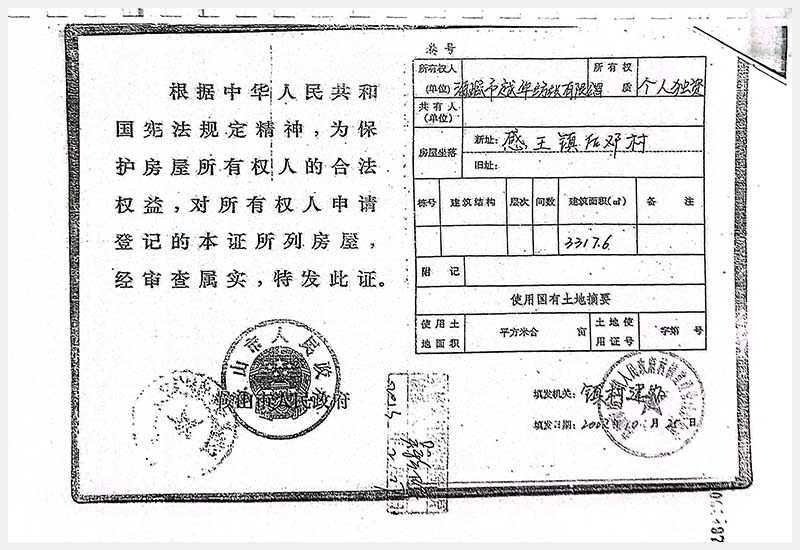 根据中华人民共和
国宪法规定精神，为保
护房屋所有权人的合法
权益，对所有权人申请
登记的本证所列房屋，
经审查属实，特发此证。
山市人民政
山市人民政府
号
所有权人
(单位)
所有权
质
个人独资
共有人
(单位)
房屋坐落
新址：感王镇后邓村
旧址：
栋号 建筑结构 层次 间数 建筑面积(㎡) 备 注
3317.6
附 记
使用国有土地摘要
使用土
地面积
平方米合 亩
土地使
用证号
字第 号
填发机关：镇村建
填发日期：2002年10月25日